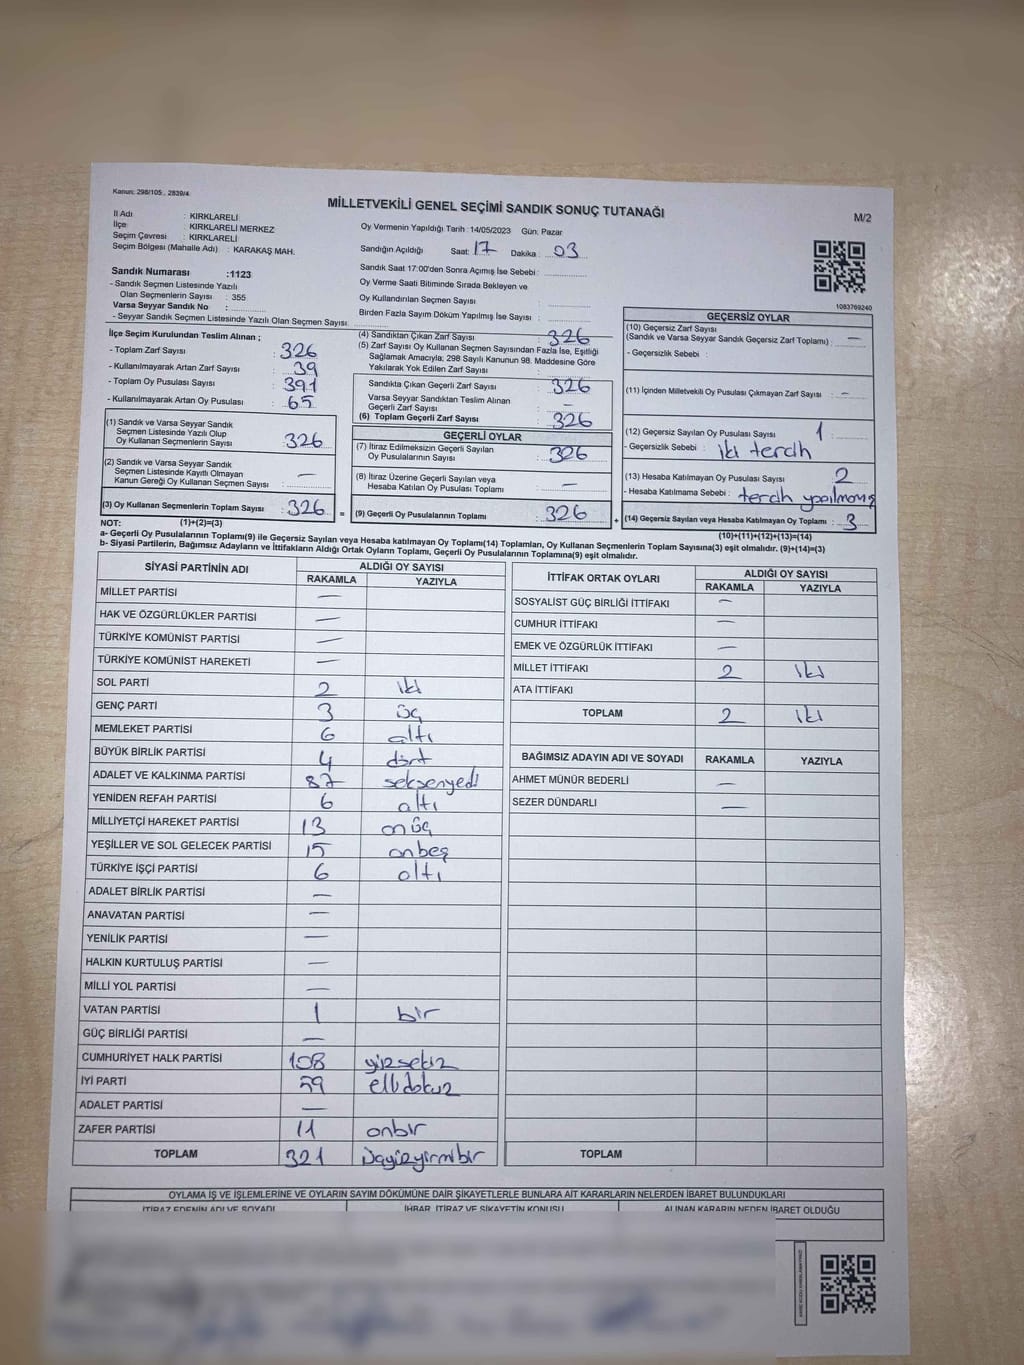 Kanun: 298/105 , 2839/4
MİLLETVEKİLİ GENEL SEÇİMİ SANDIK SONUÇ TUTANAĞI
M/2
İl Adı : KIRKLARELİ
İlçe : KIRKLARELİ MERKEZ
Seçim Çevresi : KIRKLARELİ
Seçim Bölgesi (Mahalle Adı) : KARAKAŞ MAH.
Oy Vermenin Yapıldığı Tarih : 14/05/2023 Gün: Pazar
Sandığın Açıldığı Saat: 17 Dakika : 03
Sandık Saat 17:00'den Sonra Açımış İse Sebebi :
Oy Verme Saati Bitiminde Sırada Bekleyen ve
Oy Kullandırılan Seçmen Sayısı :
Birden Fazla Sayım Döküm Yapılmış İse Sayısı :
Sandık Numarası :1123
- Sandık Seçmen Listesinde Yazılı
Olan Seçmenlerin Sayısı : 355
Varsa Seyyar Sandık No :
- Seyyar Sandık Seçmen Listesinde Yazılı Olan Seçmen Sayısı:
1083769240
İlçe Seçim Kurulundan Teslim Alınan ;
- Toplam Zarf Sayısı : 326
- Kullanılmayarak Artan Zarf Sayısı : 39
- Toplam Oy Pusulası Sayısı : 391
- Kullanılmayarak Artan Oy Pusulası : 65
(1) Sandık ve Varsa Seyyar Sandık
Seçmen Listesinde Yazılı Olup
Oy Kullanan Seçmenlerin Sayısı : 326
(2) Sandık ve Varsa Seyyar Sandık
Seçmen Listesinde Kayıtlı Olmayan
Kanun Gereği Oy Kullanan Seçmen Sayısı : —
(3) Oy Kullanan Seçmenlerin Toplam Sayısı : 326 =
(4) Sandıktan Çıkan Zarf Sayısı : 326
(5) Zarf Sayısı Oy Kullanan Seçmen Sayısından Fazla İse, Eşitliği
Sağlamak Amacıyla; 298 Sayılı Kanunun 98. Maddesine Göre
Yakılarak Yok Edilen Zarf Sayısı :
Sandıkta Çıkan Geçerli Zarf Sayısı : 326
Varsa Seyyar Sandıktan Teslim Alınan
Geçerli Zarf Sayısı : —
(6) Toplam Geçerli Zarf Sayısı : 326
GEÇERLİ OYLAR
(7) İtiraz Edilmeksizin Geçerli Sayılan
Oy Pusulalarının Sayısı : 326
(8) İtiraz Üzerine Geçerli Sayılan veya
Hesaba Katılan Oy Pusulası Toplamı : —
(9) Geçerli Oy Pusulalarının Toplamı : 326 +
GEÇERSİZ OYLAR
(10) Geçersiz Zarf Sayısı
(Sandık ve Varsa Seyyar Sandık Geçersiz Zarf Toplamı) : —
- Geçersizlik Sebebi :
(11) İçinden Milletvekili Oy Pusulası Çıkmayan Zarf Sayısı : —
(12) Geçersiz Sayılan Oy Pusulası Sayısı : 1
- Geçersizlik Sebebi : iki tercih
(13) Hesaba Katılmayan Oy Pusulası Sayısı : 2
- Hesaba Katılmama Sebebi : tercih yapılmamış
(14) Geçersiz Sayılan veya Hesaba Katılmayan Oy Toplamı : 3
NOT: (1)+(2)=(3)
(10)+(11)+(12)+(13)=(14)
a- Geçerli Oy Pusulalarının Toplamı(9) ile Geçersiz Sayılan veya Hesaba katılmayan Oy Toplamı(14) Toplamları, Oy Kullanan Seçmenlerin Toplam Sayısına(3) eşit olmalıdır. (9)+(14)=(3)
b- Siyasi Partilerin, Bağımsız Adayların ve İttifakların Aldığı Ortak Oyların Toplamı, Geçerli Oy Pusulalarının Toplamına(9) eşit olmalıdır.
SİYASİ PARTİNİN ADI ALDIĞI OY SAYISI
RAKAMLA YAZIYLA
MİLLET PARTİSİ —
HAK VE ÖZGÜRLÜKLER PARTİSİ —
TÜRKİYE KOMÜNİST PARTİSİ —
TÜRKİYE KOMÜNİST HAREKETİ —
SOL PARTİ 2 iki
GENÇ PARTİ 3 üç
MEMLEKET PARTİSİ 6 altı
BÜYÜK BİRLİK PARTİSİ 4 dört
ADALET VE KALKINMA PARTİSİ 87 seksenyedi
YENİDEN REFAH PARTİSİ 6 altı
MİLLİYETÇİ HAREKET PARTİSİ 13 onüç
YEŞİLLER VE SOL GELECEK PARTİSİ 15 onbeş
TÜRKİYE İŞÇİ PARTİSİ 6 altı
ADALET BİRLİK PARTİSİ —
ANAVATAN PARTİSİ —
YENİLİK PARTİSİ —
HALKIN KURTULUŞ PARTİSİ —
MİLLİ YOL PARTİSİ —
VATAN PARTİSİ 1 bir
GÜÇ BİRLİĞİ PARTİSİ —
CUMHURİYET HALK PARTİSİ 108 yüzsekiz
İYİ PARTİ 59 ellidokuz
ADALET PARTİSİ —
ZAFER PARTİSİ 11 onbir
TOPLAM 321 üçyüzyirmibir
İTTİFAK ORTAK OYLARI ALDIĞI OY SAYISI
RAKAMLA YAZIYLA
SOSYALİST GÜÇ BİRLİĞİ İTTİFAKI —
CUMHUR İTTİFAKI —
EMEK VE ÖZGÜRLÜK İTTİFAKI —
MİLLET İTTİFAKI 2 iki
ATA İTTİFAKI
TOPLAM 2 iki
BAĞIMSIZ ADAYIN ADI VE SOYADI RAKAMLA YAZIYLA
AHMET MÜNÜR BEDERLİ —
SEZER DÜNDARLI —
TOPLAM
OYLAMA İŞ VE İŞLEMLERİNE VE OYLARIN SAYIM DÖKÜMÜNE DAİR ŞİKAYETLERLE BUNLARA AİT KARARLARIN NELERDEN İBARET BULUNDUKLARI
İTİRAZ EDENİN ADI VE SOYADI İHBAR, İTİRAZ VE ŞİKAYETİN KONUSU ALINAN KARARIN NEDEN İBARET OLDUĞU